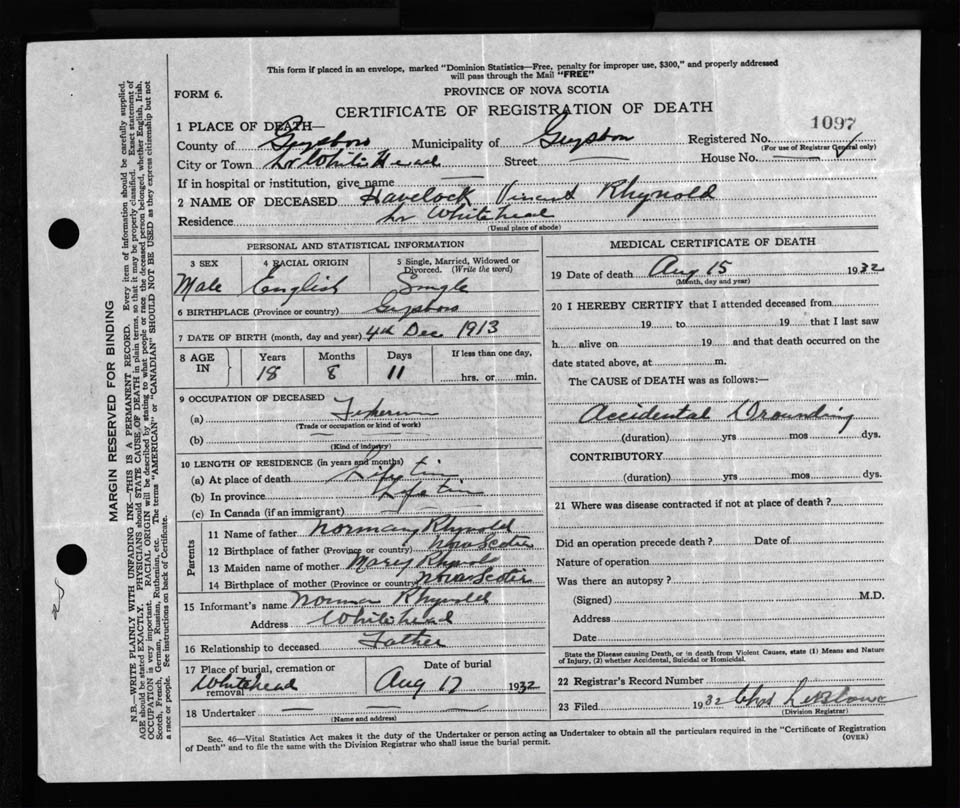 This form if placed in an envelope, marked "Dominion Statistics—Free, penalty for improper use, $300," and properly addressed
will pass through the Mail "FREE"
FORM 6.
PROVINCE OF NOVA SCOTIA
CERTIFICATE OF REGISTRATION OF DEATH
1097
1 PLACE OF DEATH—
County of Guysboro Municipality of Guysboro Registered No.
(For use of Registrar General only)
City or Town Lr Whitehead Street — House No. —
If in hospital or institution, give name —
2 NAME OF DECEASED Havelock Vincent Rhynold
Residence Lr Whitehead
(Usual place of abode)
PERSONAL AND STATISTICAL INFORMATION
3 SEX 4 RACIAL ORIGIN 5 Single, Married, Widowed or Divorced. (Write the word)
Male English Single
6 BIRTHPLACE (Province or country) Guysboro
7 DATE OF BIRTH (month, day and year) 4th Dec 1913
8 AGE IN Years Months Days If less than one day,
18 8 11 hrs. or min.
9 OCCUPATION OF DECEASED
(a) Fisherman
(Trade or occupation or kind of work)
(b) —
(Kind of industry)
10 LENGTH OF RESIDENCE (in years and months)
(a) At place of death Life time
(b) In province Life time
(c) In Canada (if an immigrant) —
Parents
11 Name of father Norman Rhynold
12 Birthplace of father (Province or country) Nova Scotia
13 Maiden name of mother Mary
14 Birthplace of mother (Province or country) Nova Scotia
15 Informant's name Norman Rhynold
Address Whitehead
16 Relationship to deceased Father
17 Place of burial, cremation or removal Whitehead
Date of burial Aug 17 1932
18 Undertaker — —
(Name and address)
MEDICAL CERTIFICATE OF DEATH
19 Date of death Aug 15 1932
(Month, day and year)
20 I HEREBY CERTIFY that I attended deceased from
19 to 19 that I last saw
h alive on 19 and that death occurred on the
date stated above, at m.
The CAUSE of DEATH was as follows:—
Accidental Drounding
(duration) yrs mos dys.
CONTRIBUTORY
(duration) yrs mos dys.
21 Where was disease contracted if not at place of death?
Did an operation precede death? Date of
Nature of operation
Was there an autopsy?
(Signed) M.D.
Address
Date
State the Disease causing Death, or in death from Violent Causes, state (1) Means and Nature
of Injury, (2) whether Accidental, Suicidal or Homicidal.
22 Registrar's Record Number
23 Filed 1932
(Division Registrar)
Sec. 46—Vital Statistics Act makes it the duty of the Undertaker or person acting as Undertaker to obtain all the particulars required in the "Certificate of Registration
of Death" and to file the same with the Division Registrar who shall issue the burial permit.
(OVER)
MARGIN RESERVED FOR BINDING
N.B.—WRITE PLAINLY WITH UNFADING INK—THIS IS A PERMANENT RECORD. Every item of information should be carefully supplied.
AGE should be stated EXACTLY. PHYSICIANS should STATE CAUSE OF DEATH in plain terms, so that it may be properly classified. Exact statement of
OCCUPATION is very important. RACIAL ORIGIN will be described by stating to what people or race the deceased person belonged, whether English, Irish,
Scotch, French, German, Russian, Ruthenian, etc. The terms "AMERICAN" or "CANADIAN" SHOULD NOT BE USED as they express citizenship but not
a race or people. See instructions on back of Certificate.